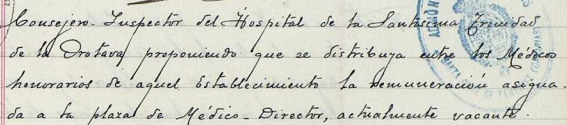 Consejero-Inspector del Hospital de la Santísima Trinidad
de la Orotava, proponiendo que se distribuya entre los Médicos
honorarios de aquel Establecimiento la remuneración asigna-
da a la plaza de Médico-Director, actualmente vacante.